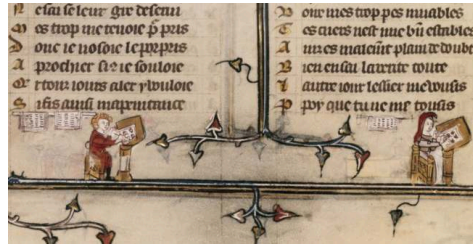 N e sai se leur gre desseru
M es trop me tenoie p̄ pris
D onc ie nosoie le porpris
A prochier si ie souloie
tous iours aler y vouloie
S ifis ausi ma
D one mes trop pes muiables
T es cuers nest mie bn̄ estables
A ins es malemt plain de doute
B ien en sai la rente toute
autre iour lessier me vousis
P p̄ que tu ne me tousis